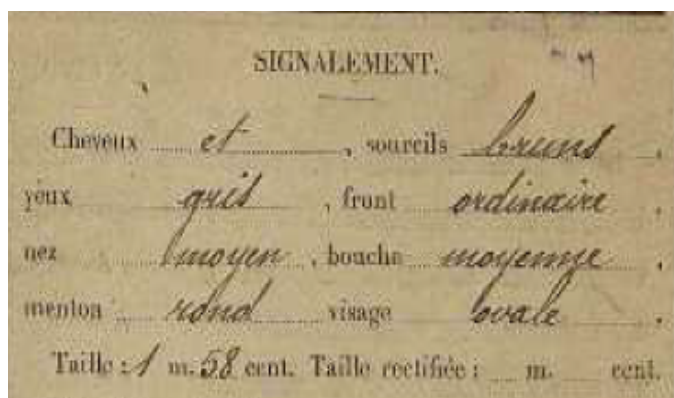 SIGNALEMENT.
Cheveux et, sourcils bruns,
yeux gris, front ordinaire,
nez moyen, bouche moyenne,
menton rond visage ovale.
Taille : 1 m. 58 cent. Taille rectifiée : m. cent.